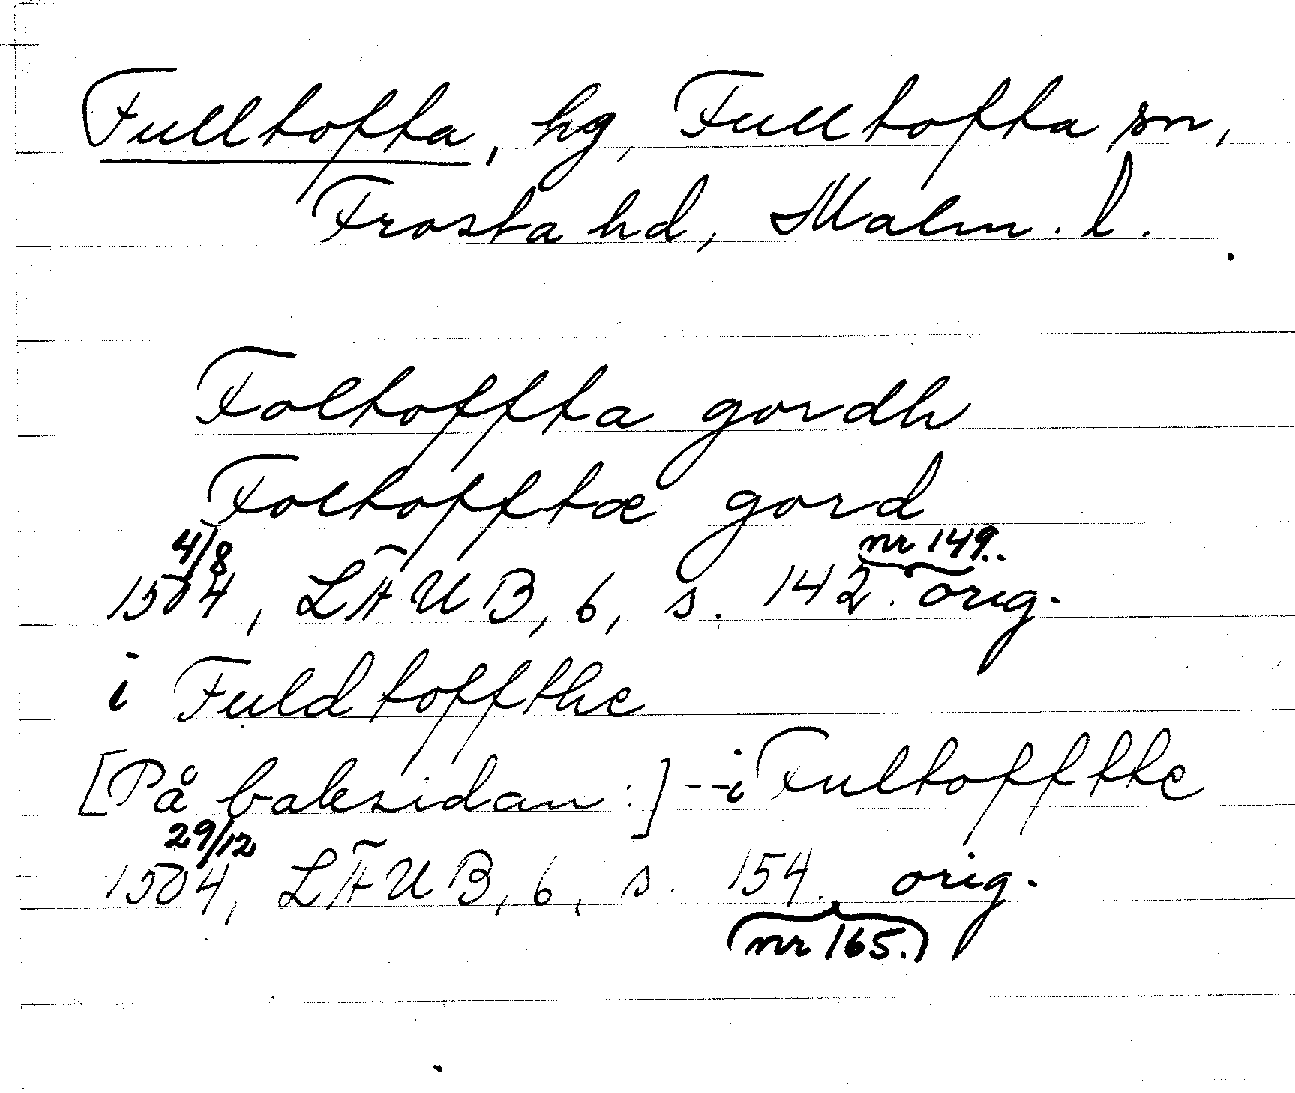 Fulltofta, hg, Fulltofta sn,
Frosta hd, Malm. l.
Foltoffta gordh
Foltofftæ gord
nr 149.
4/8
1504, LÄUB, 6, s. 142. orig.
i Fuldtoffthe
[På baksidan:] - i Fultoffthe
29/12
1504, LÄUB, 6, s. 154. orig.
(nr 165.)